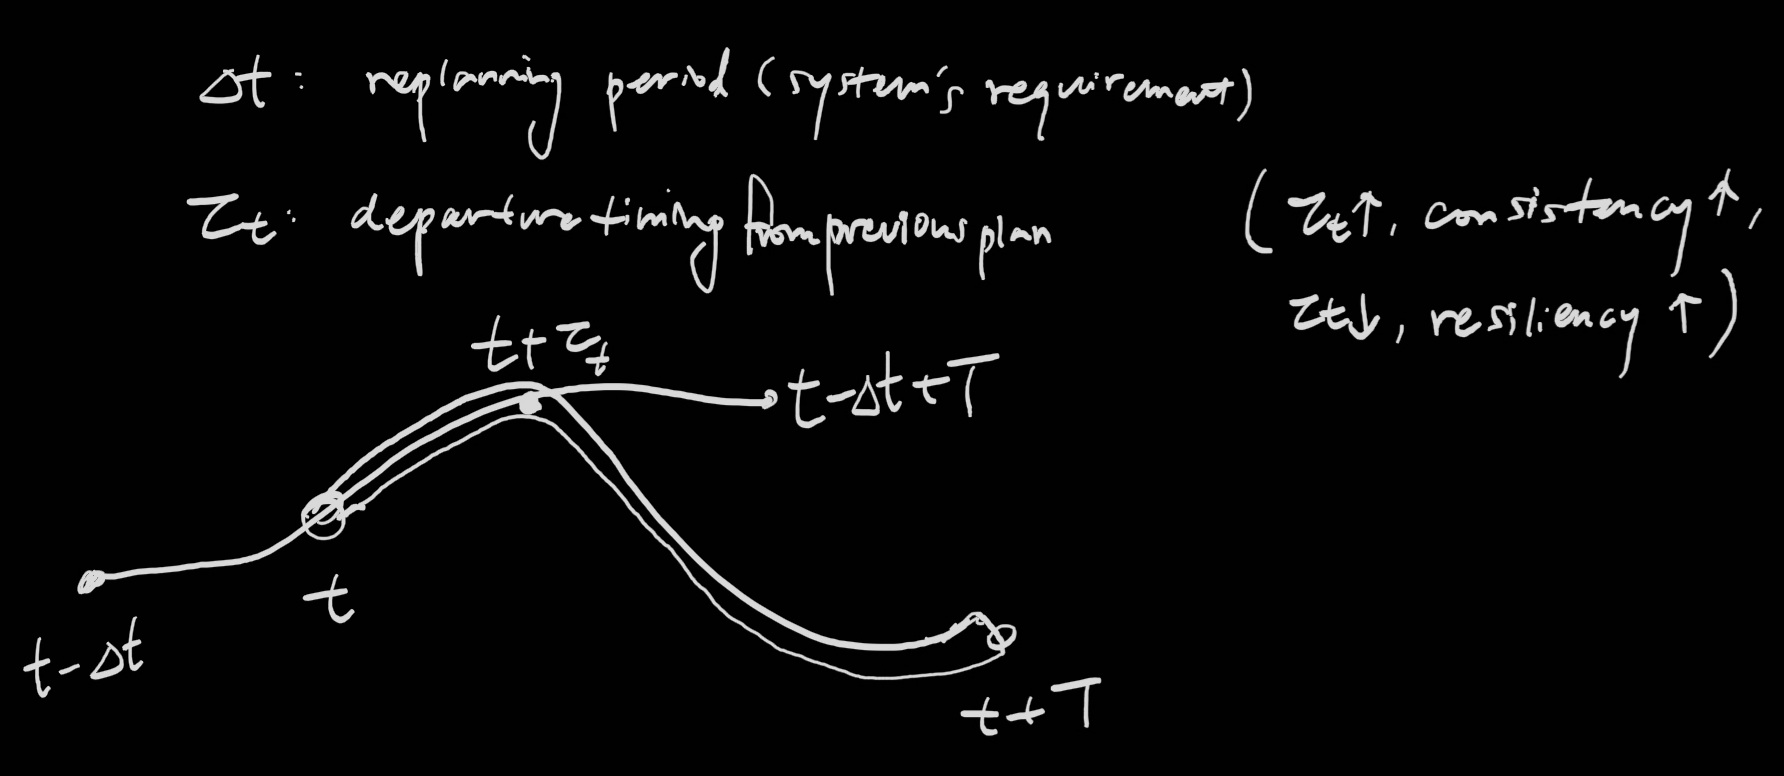 Δt: replanning period (system's requirement)
τt: departure timing from previous plan
(τt↑, consistency↑,
τt↓, resiliency↑)
t+τt
t-Δt+T
t
t-Δt
t+T